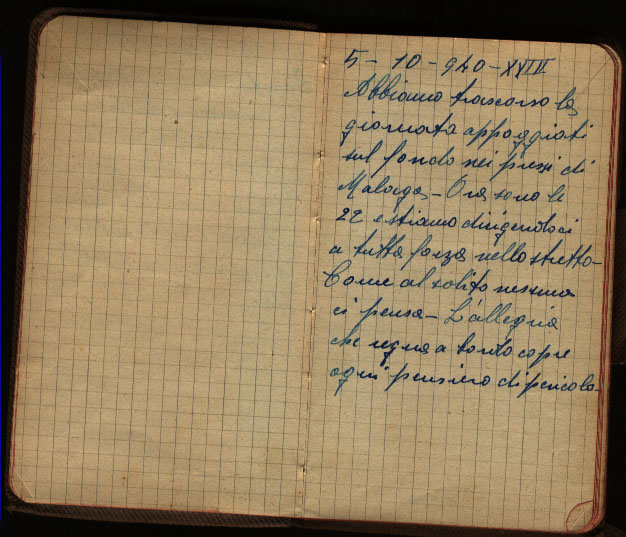 5 - 10 - 940 - XVIII
Abbiamo trascorso la
giornata appoggiati
sul fondo nei pressi di
Malaga - Ora sono le
22 e stiamo dirigendoci
a tutta forza nello stretto -
Come al solito nessuno
ci pensa - L'allegria
che regna a bordo copre
ogni pensiero di pericolo.